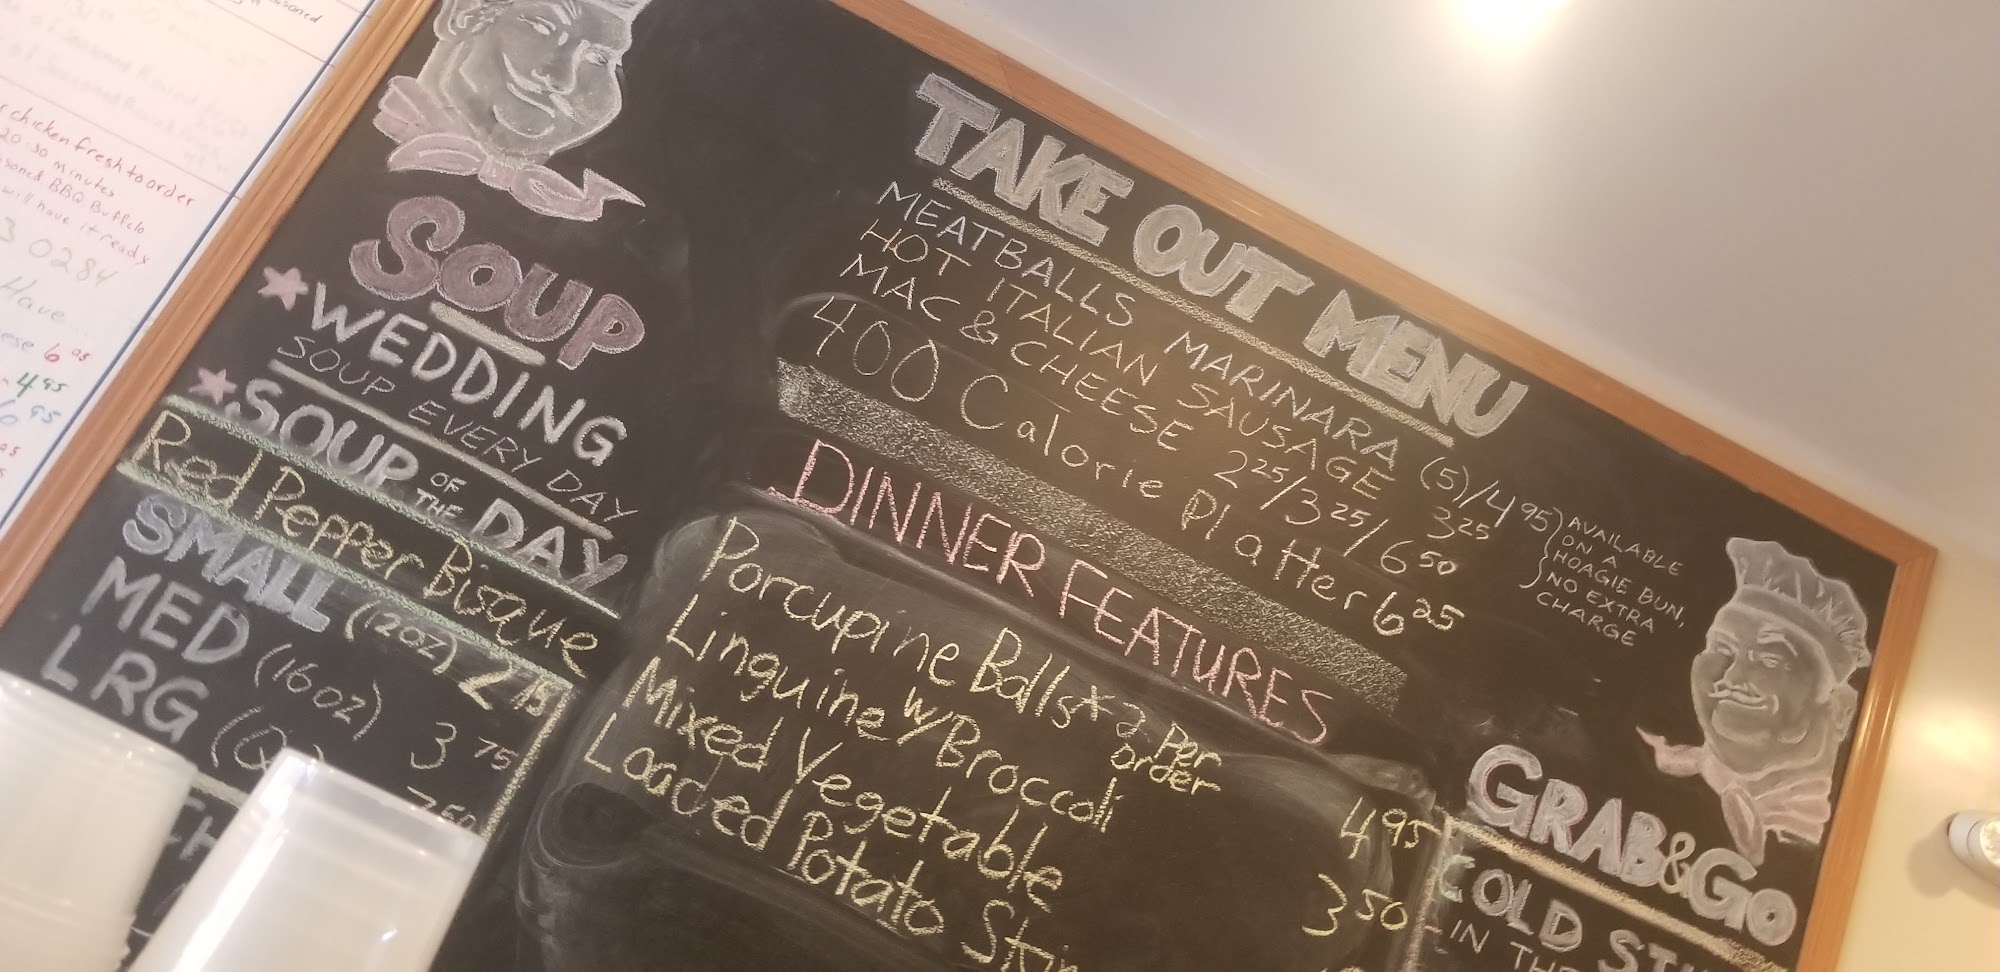 chicken fresh to order
20-30 minutes
BBQ Buffalo
will have it ready
3 0284
Have
6 95
4 95
SOUP
WEDDING
SOUP EVERY DAY
SOUP OF THE DAY
Red Pepper Bisque
SMALL (12OZ) 2 75
MED (16OZ) 3 75
LRG (Q 7 50
TAKE OUT MENU
MEATBALLS MARINARA (5)/4 95
HOT ITALIAN SAUSAGE 3 25
MAC & CHEESE 2 25/3 25/6 50
400 Calorie Platter 6 25
AVAILABLE
ON A
HOAGIE BUN,
NO EXTRA
CHARGE
DINNER FEATURES
Porcupine Balls* 2 per order
Linguine w/Broccoli 4 95
Mixed Vegetable 3 50
Loaded Potato
GRAB & GO
COLD
IN THE